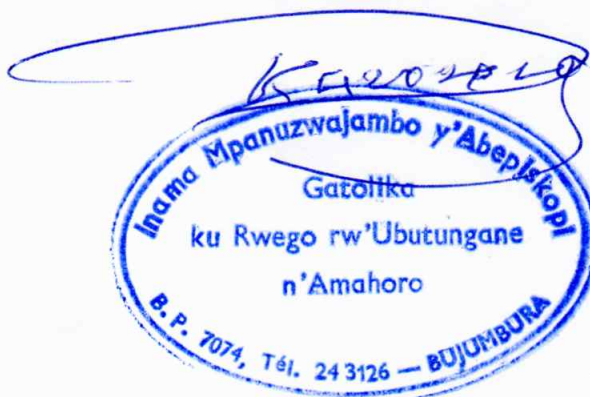 Inama Mpanuzwajambo y'Abepiskopi
Gatolika
ku Rwego rw'Ubutungane
n'Amahoro
B.P. 7074, Tél. 24 3126 — BUJUMBURA